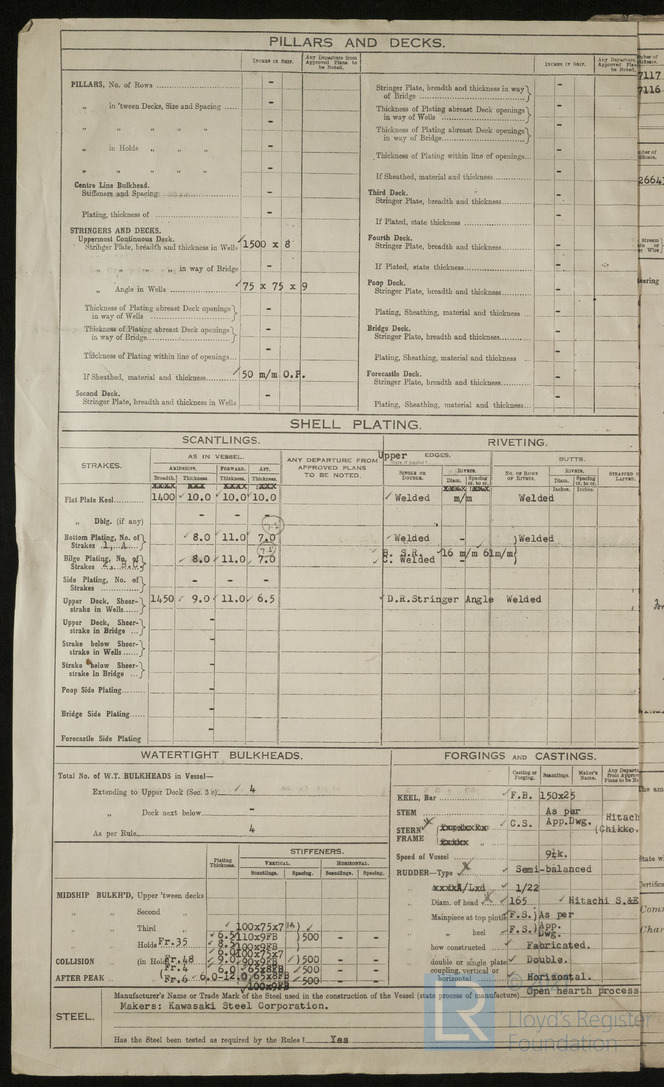 PILLARS AND DECKS.
INCHES IN SHIP.
Any Departure from Approved Plans to be Noted.
PILLARS, No. of Rows -
„ in 'tween Decks, Size and Spacing -
„ „ „ „ -
„ in Holds „ „ -
„ „ „ „ -
Centre Line Bulkhead.
Stiffeners and Spacing -
Plating, thickness of -
STRINGERS AND DECKS.
Uppermost Continuous Deck.
Stringer Plate, breadth and thickness in Wells 1500 x 8
„ „ „ „ in way of Bridge -
„ Angle in Wells 75 x 75 x 9
Thickness of Plating abreast Deck openings in way of Wells -
Thickness of Plating abreast Deck openings in way of Bridge -
Thickness of Plating within line of openings -
If Sheathed, material and thickness 50 m/m O.P.
Second Deck.
Stringer Plate, breadth and thickness in Wells -
INCHES IN SHIP.
Any Departure Approved Plans to be Noted.
Stringer Plate, breadth and thickness in way of Bridge -
Thickness of Plating abreast Deck openings in way of Wells -
Thickness of Plating abreast Deck openings in way of Bridge -
Thickness of Plating within line of openings -
If Sheathed, material and thickness -
Third Deck.
Stringer Plate, breadth and thickness -
If Plated, state thickness -
Fourth Deck.
Stringer Plate, breadth and thickness -
If Plated, state thickness -
Poop Deck.
Stringer Plate, breadth and thickness -
Plating, Sheathing, material and thickness -
Bridge Deck.
Stringer Plate, breadth and thickness -
Plating, Sheathing, material and thickness -
Forecastle Deck.
Stringer Plate, breadth and thickness -
Plating, Sheathing, material and thickness -
7117
7116
2664
SHELL PLATING.
SCANTLINGS.
RIVETING.
STRAKES.
AS IN VESSEL.
ANY DEPARTURE FROM APPROVED PLANS TO BE NOTED.
Upper EDGES.
BUTTS.
AMIDSHIPS.
FORWARD.
AFT.
SINGLE OR DOUBLE.
RIVETS.
NO. OF ROWS OF RIVETS.
RIVETS.
STRAPPED OR LAPPED.
Breadth.
Thickness.
Thickness.
Thickness.
Diam.
Spacing cr. to cr.
Diam.
Spacing cr. to cr.
Inches.
Inches.
Flat Plate Keel 1400 10.0 10.0 10.0 Welded m/m Welded
„ Dblg. (if any) - - -
Bottom Plating, No. of Strakes 8.0 11.0 7.0 Welded - Welded
Bilge Plating, No. of Strakes 8.0 11.0 7.0 B. S.R. 16 m/m 61m/m
C. Welded
Side Plating, No. of Strakes - - -
Upper Deck, Sheerstrake in Wells 1450 9.0 11.0 6.5 D.R.Stringer Angle Welded
Upper Deck, Sheerstrake in Bridge -
Strake below Sheerstrake in Wells -
Strake below Sheerstrake in Bridge -
Poop Side Plating -
Bridge Side Plating -
Forecastle Side Plating -
WATERTIGHT BULKHEADS.
Total No. of W.T. BULKHEADS in Vessel—
Extending to Upper Deck (Sec. 3 c) 4
„ Deck next below -
As per Rule 4
Plating Thickness.
STIFFENERS.
VERTICAL.
HORIZONTAL.
Scantlings.
Spacing.
Scantlings.
Spacing.
MIDSHIP BULKH'D, Upper 'tween decks
„ „ Second „
„ „ Third „ 100x75x7
„ „ Holds Fr.35 6.5 110x9FB 500 - -
8.5 100x9FB
6.0 100x75x7
COLLISION „ (in Hold) Fr.48 9.0 90x9FB 500 - -
Fr.4 6.0 65x8FB 500 - -
AFTER PEAK „ Fr.6 6.0-12.0 65x8FB 500 - -
100x9FB
FORGINGS AND CASTINGS.
Casting or Forging.
Scantlings.
Maker's Name.
KEEL, Bar F.B. 150x25
STEM As per
STERN FRAME C.S. App.Dwg. Hitach
(Chikko.
Speed of Vessel 9½k.
RUDDER—Type Semi-balanced
1/22
„ Diam. of head 165 Hitachi S.&E
Mainpiece at top pintle (F.S.) As per
„ heel (F.S.) App. Dwg.
„ how constructed Fabricated.
„ double or single plate Double.
„ coupling, vertical or horizontal Horizontal.
STEEL.
Manufacturer's Name or Trade Mark of the Steel used in the construction of the Vessel (state process of manufacture) Open hearth process
Makers: Kawasaki Steel Corporation.
Has the Steel been tested as required by the Rules? Yes
LR
© 2021
Lloyd's Register
Foundation